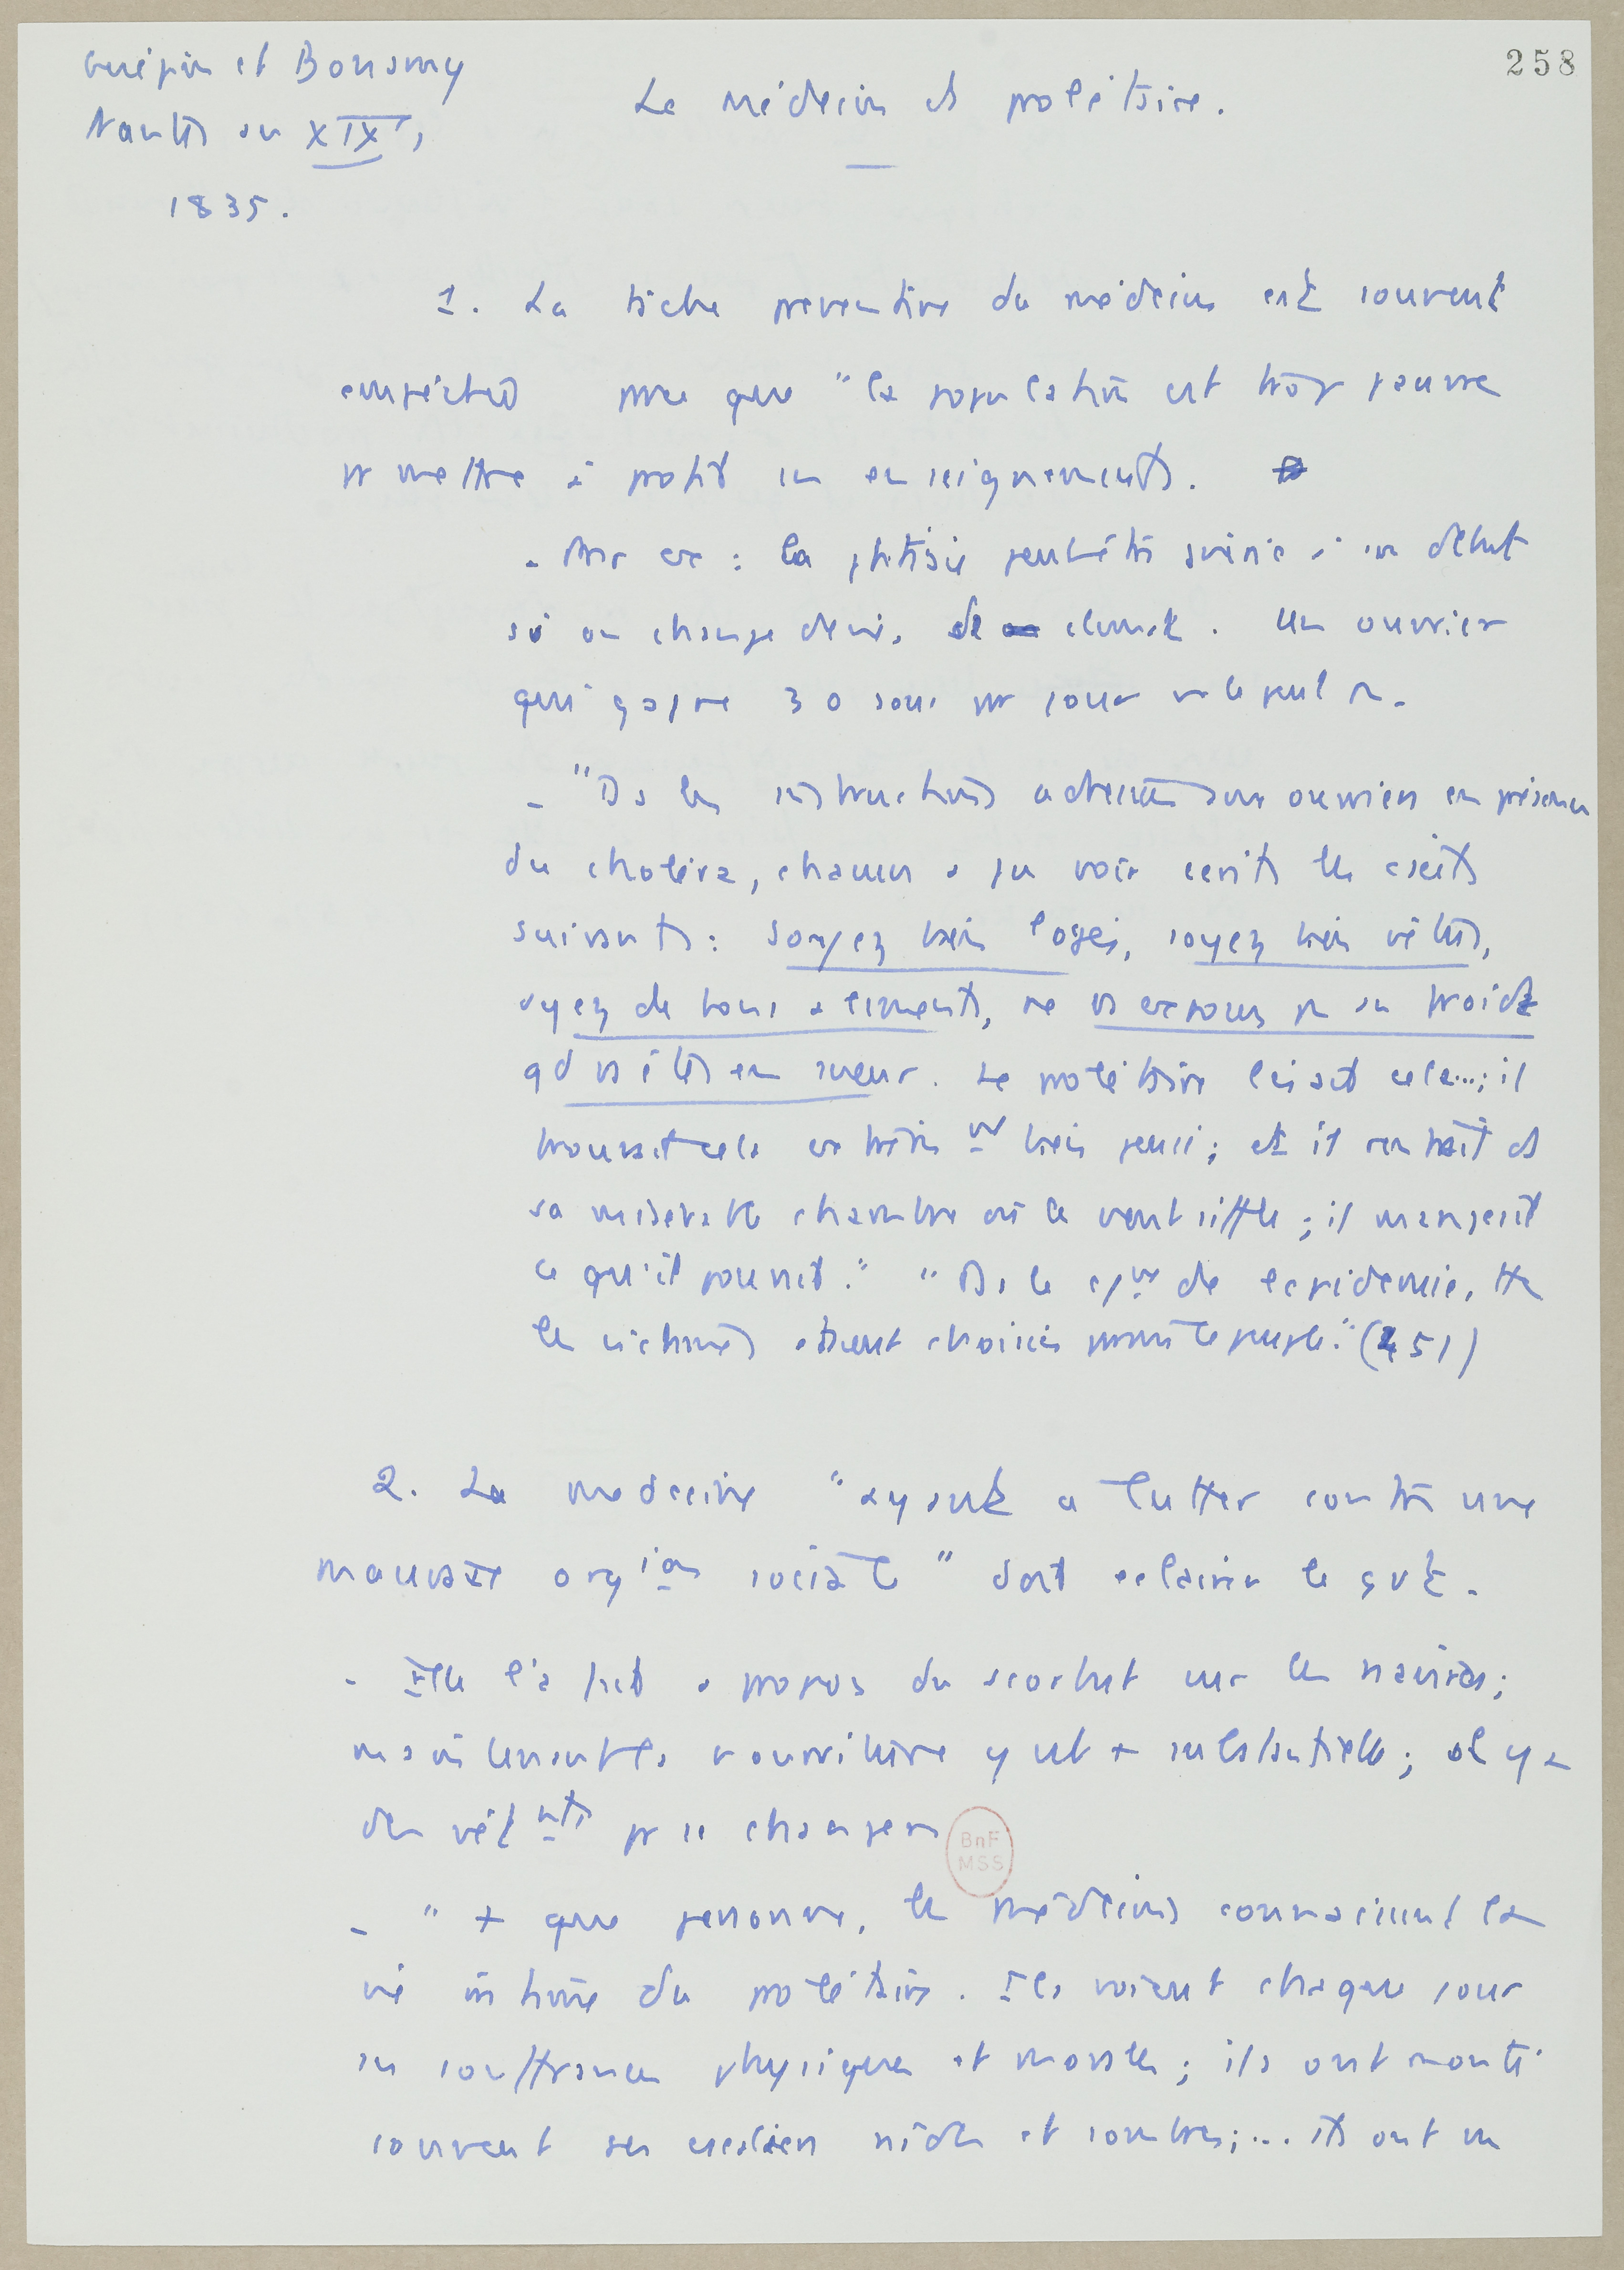 258
Guépin et Bonamy
Nantes au XIXe,
1835.
Le médecin et prolétaire.
1. La tâche préventive du médecin est souvent
empêchée parce que "la population est trop pauvre
pr mettre à profit ses enseignements.
- Par ex : la phtisie peut être guérie à son début
si on change de vie, de climat. Un ouvrier
qui gagne 30 sous par jour ne le peut pas.
- "Ds les instructions adressées aux ouvriers en présence
du choléra, chacun a pu voir écrits les
suivants : Soyez bien logés, soyez bien vêtus,
ayez de bons aliments, ne vs exposez pas au froid
qd vs êtes en sueur. Le prolétaire lisait cela...; il
trouvait cela bien pensé ; et il rentrait ds
sa misérable chambre où le vent siffle ; il mangeait
ce qu'il pouvait." "Ds le de l'épidémie, ttes
les victimes étaient choisies parmi le peuple." (451)
2. La médecine "ayant à lutter contre une
mauvaise orgion sociale" doit éclairer le gvt.
- Elle l'a fait à propos du scorbut sur les navires ;
maintenant la nourriture y est + substantielle ; il y a
des vêtmts pr se changer
- " + que personne, les médecins connaissent la
vie intime du prolétaire. Ils voient chaque jour
ses souffrances physiques et morales ; ils ont monté
souvent ses escaliers raides et sombres ;... ils ont vu
BnF
MSS